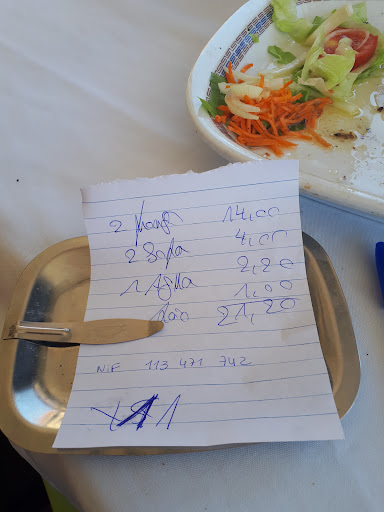 2 14,00
2 Sopa 4,00
1 Água 2,20
1,00
21,20
NIF 113 471 742